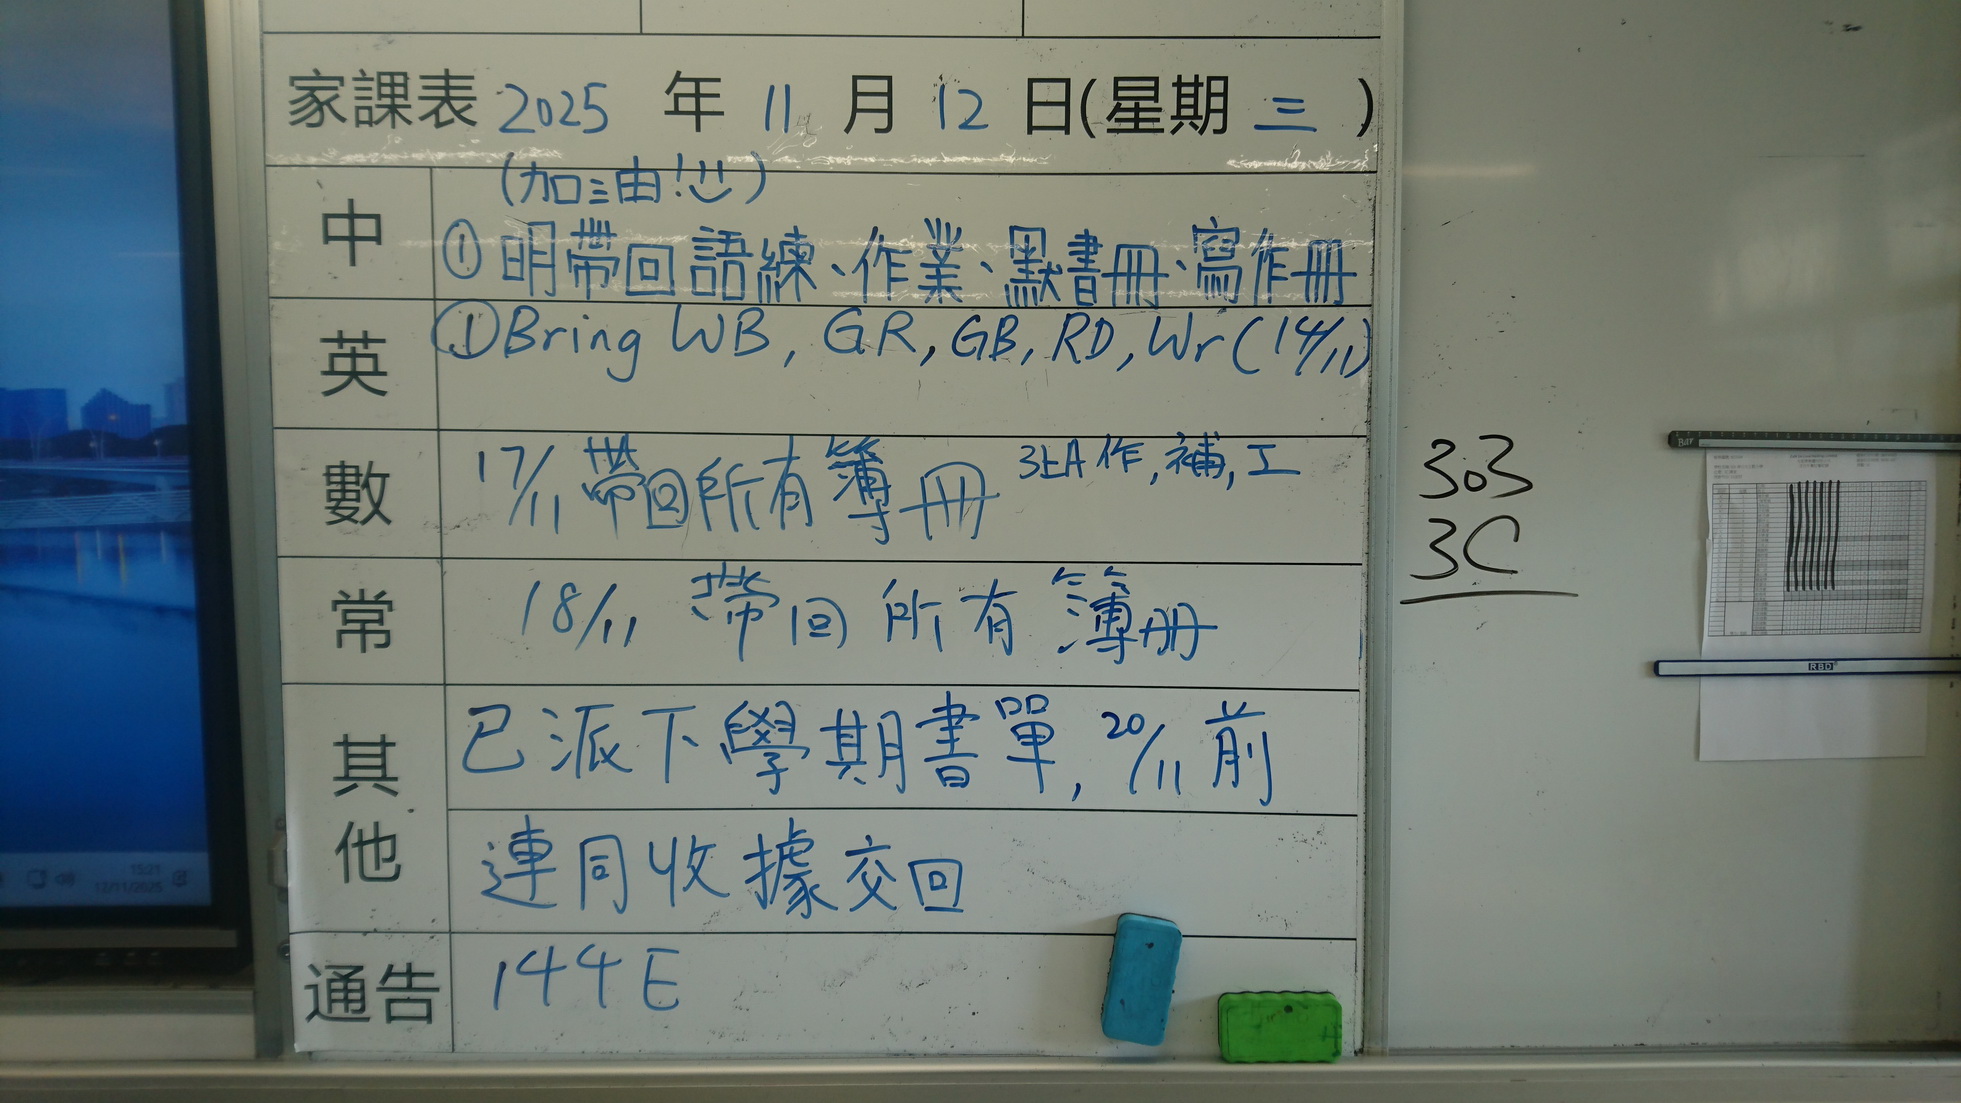 家課表 2025 年 11 月 12 日(星期 三 )
(加油!)
中 ① 明帶回語練、作業、默書冊、寫作冊
英 ① Bring WB, GR, GB, RD, Wr (14/11)
數 17/11 帶回所有簿冊 3上A作,補,工
常 18/11 帶回所有簿冊
其他 已派下學期書單, 20/11 前
連同收據交回
通告 144E
303
3C
15:21
12/11/2025
RBD